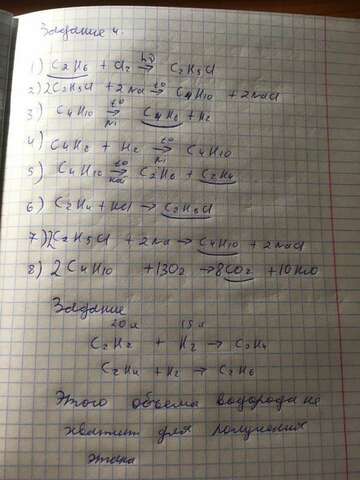 Задание 4.
1) C2H6 + Cl2 hν→ C2H5Cl
2) 2C2H5Cl + 2Na t0→ C4H10 + 2NaCl
3) C4H10 t0→ Ni C4H8 + H2
4) C4H8 + H2 t0→ Ni C4H10
5) C4H10 t0→ C2H6 + C2H4
6) C2H4 + HCl → C2H5Cl
7) 2C2H5Cl + 2Na → C4H10 + 2NaCl
8) 2C4H10 + 13O2 → 8CO2 + 10H2O
Задание
20 л 15 л
C2H2 + H2 → C2H4
C2H4 + H2 → C2H6
Этого объема водорода не
хватит для получения
этана